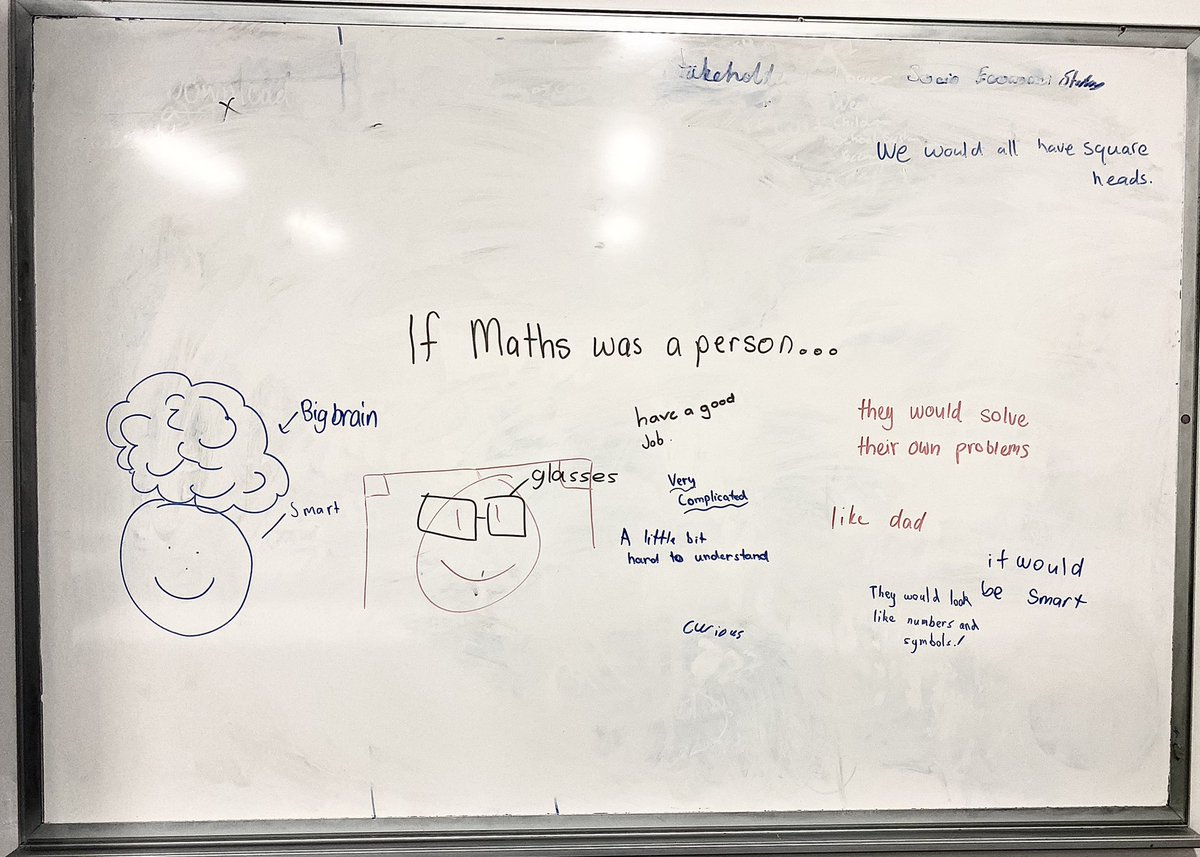 We would all have square
heads.
If Maths was a person...
Big brain
Smart
glasses
have a good
Job.
Very
Complicated
A little bit
hard to understand
Curious
they would solve
their own problems
like dad
it would
be Smart
They would look
like numbers and
symbols!